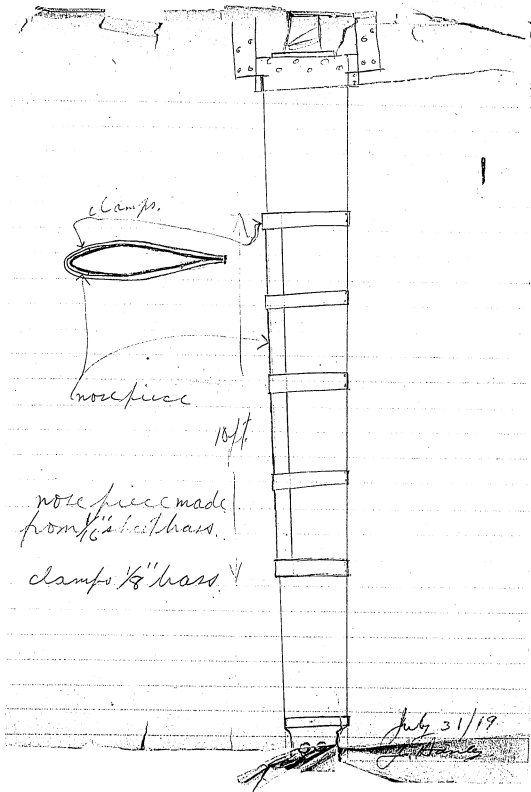 clamps.
nosepiece
10ft.
nose piece made
from 1/16" sheet brass.
clamps 1/8" brass
July 31/19